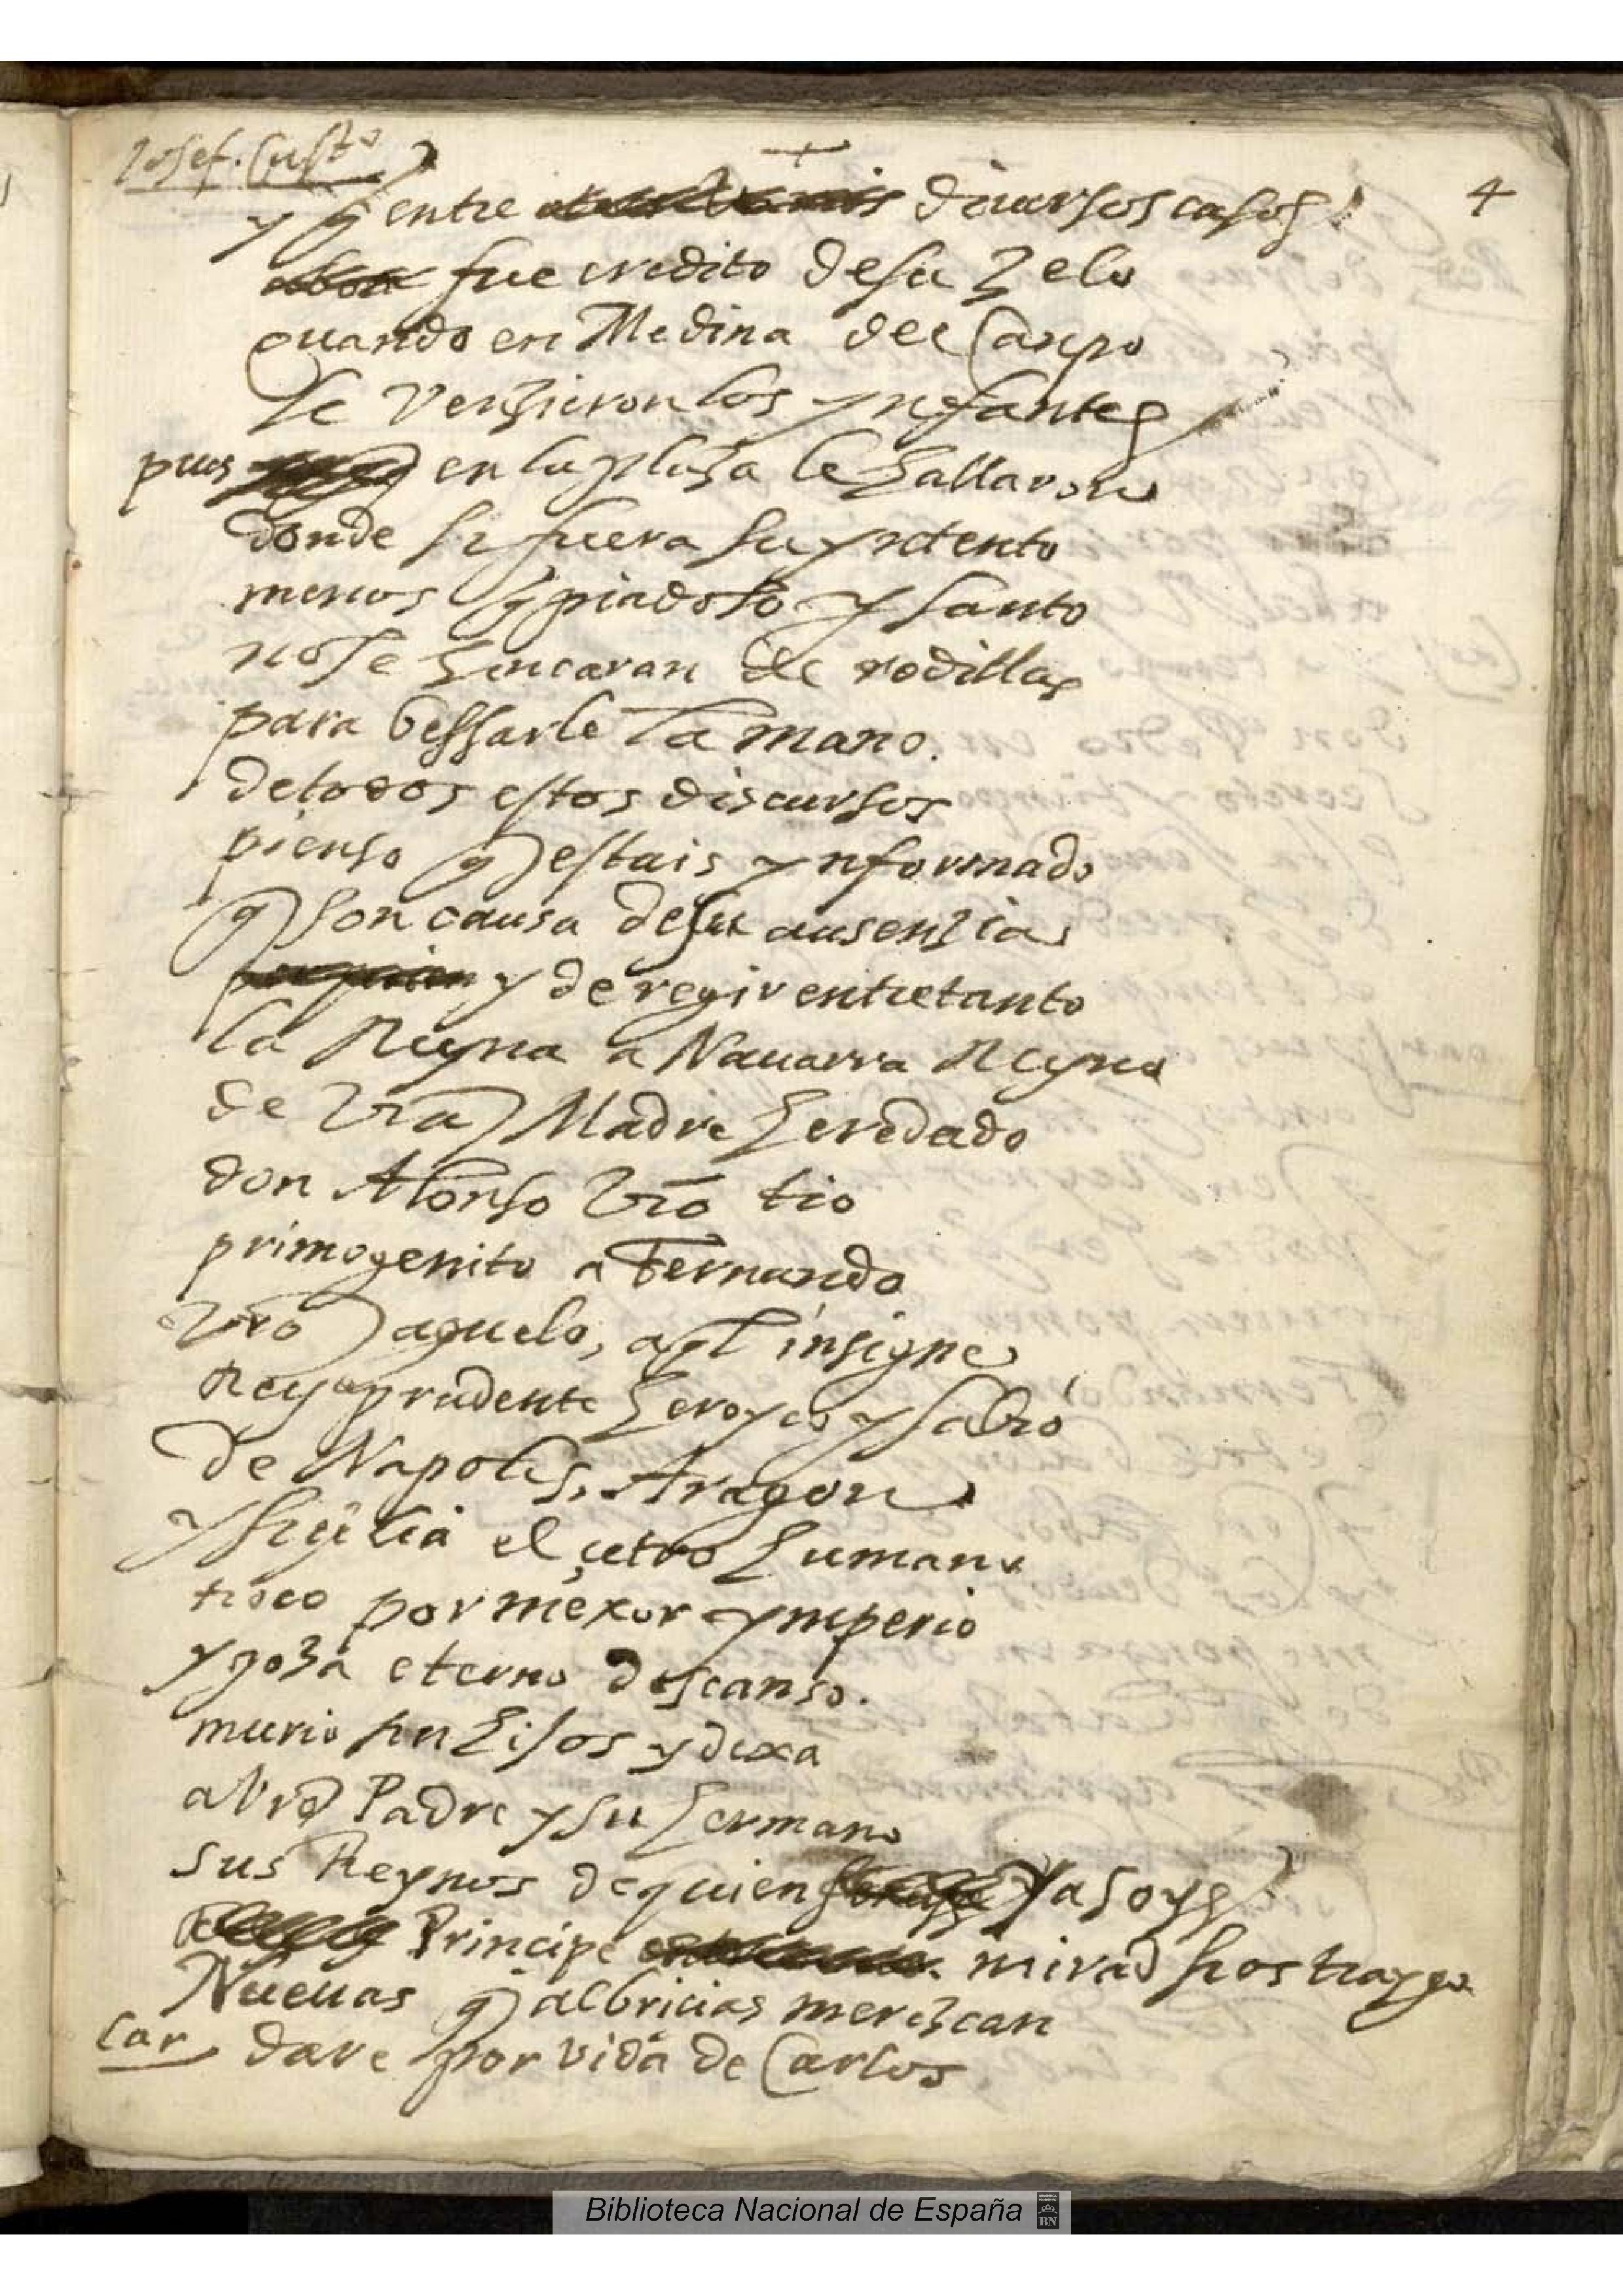 Josef. Custo
+
4
y q entre diuersos casos
fue credito de su zelo
quando en Medina del Canpo
le venzieron los ynfantes
pues en la plaza le hallaron
donde si fuera su yntento
menos q piadoso y santo
no se hincaran de rodillas
para bessarle la mano.
de todos estos discursos
pienso q estais ynformado
q son causa de su ausenzia
y de regir entretanto
la Reyna a Nauarra Reyno
de vra Madre heredado
don Alonso vro tio
primogenito a Fernando
vro aguelo, aql insigne
Rey prudente heroyco y sabio
de Napoles, Aragon
y siçilia el çetro humano
troco por mexor ymperio
y goza eterno descanso.
murio sin hijos y dexa
a vro Padre y su hermano
sus Reynos de quien ya soys
Principe mirad si os traygo
Nueuas q albricias merezcan
Car dare por vida de Carlos
Biblioteca Nacional de España
BN